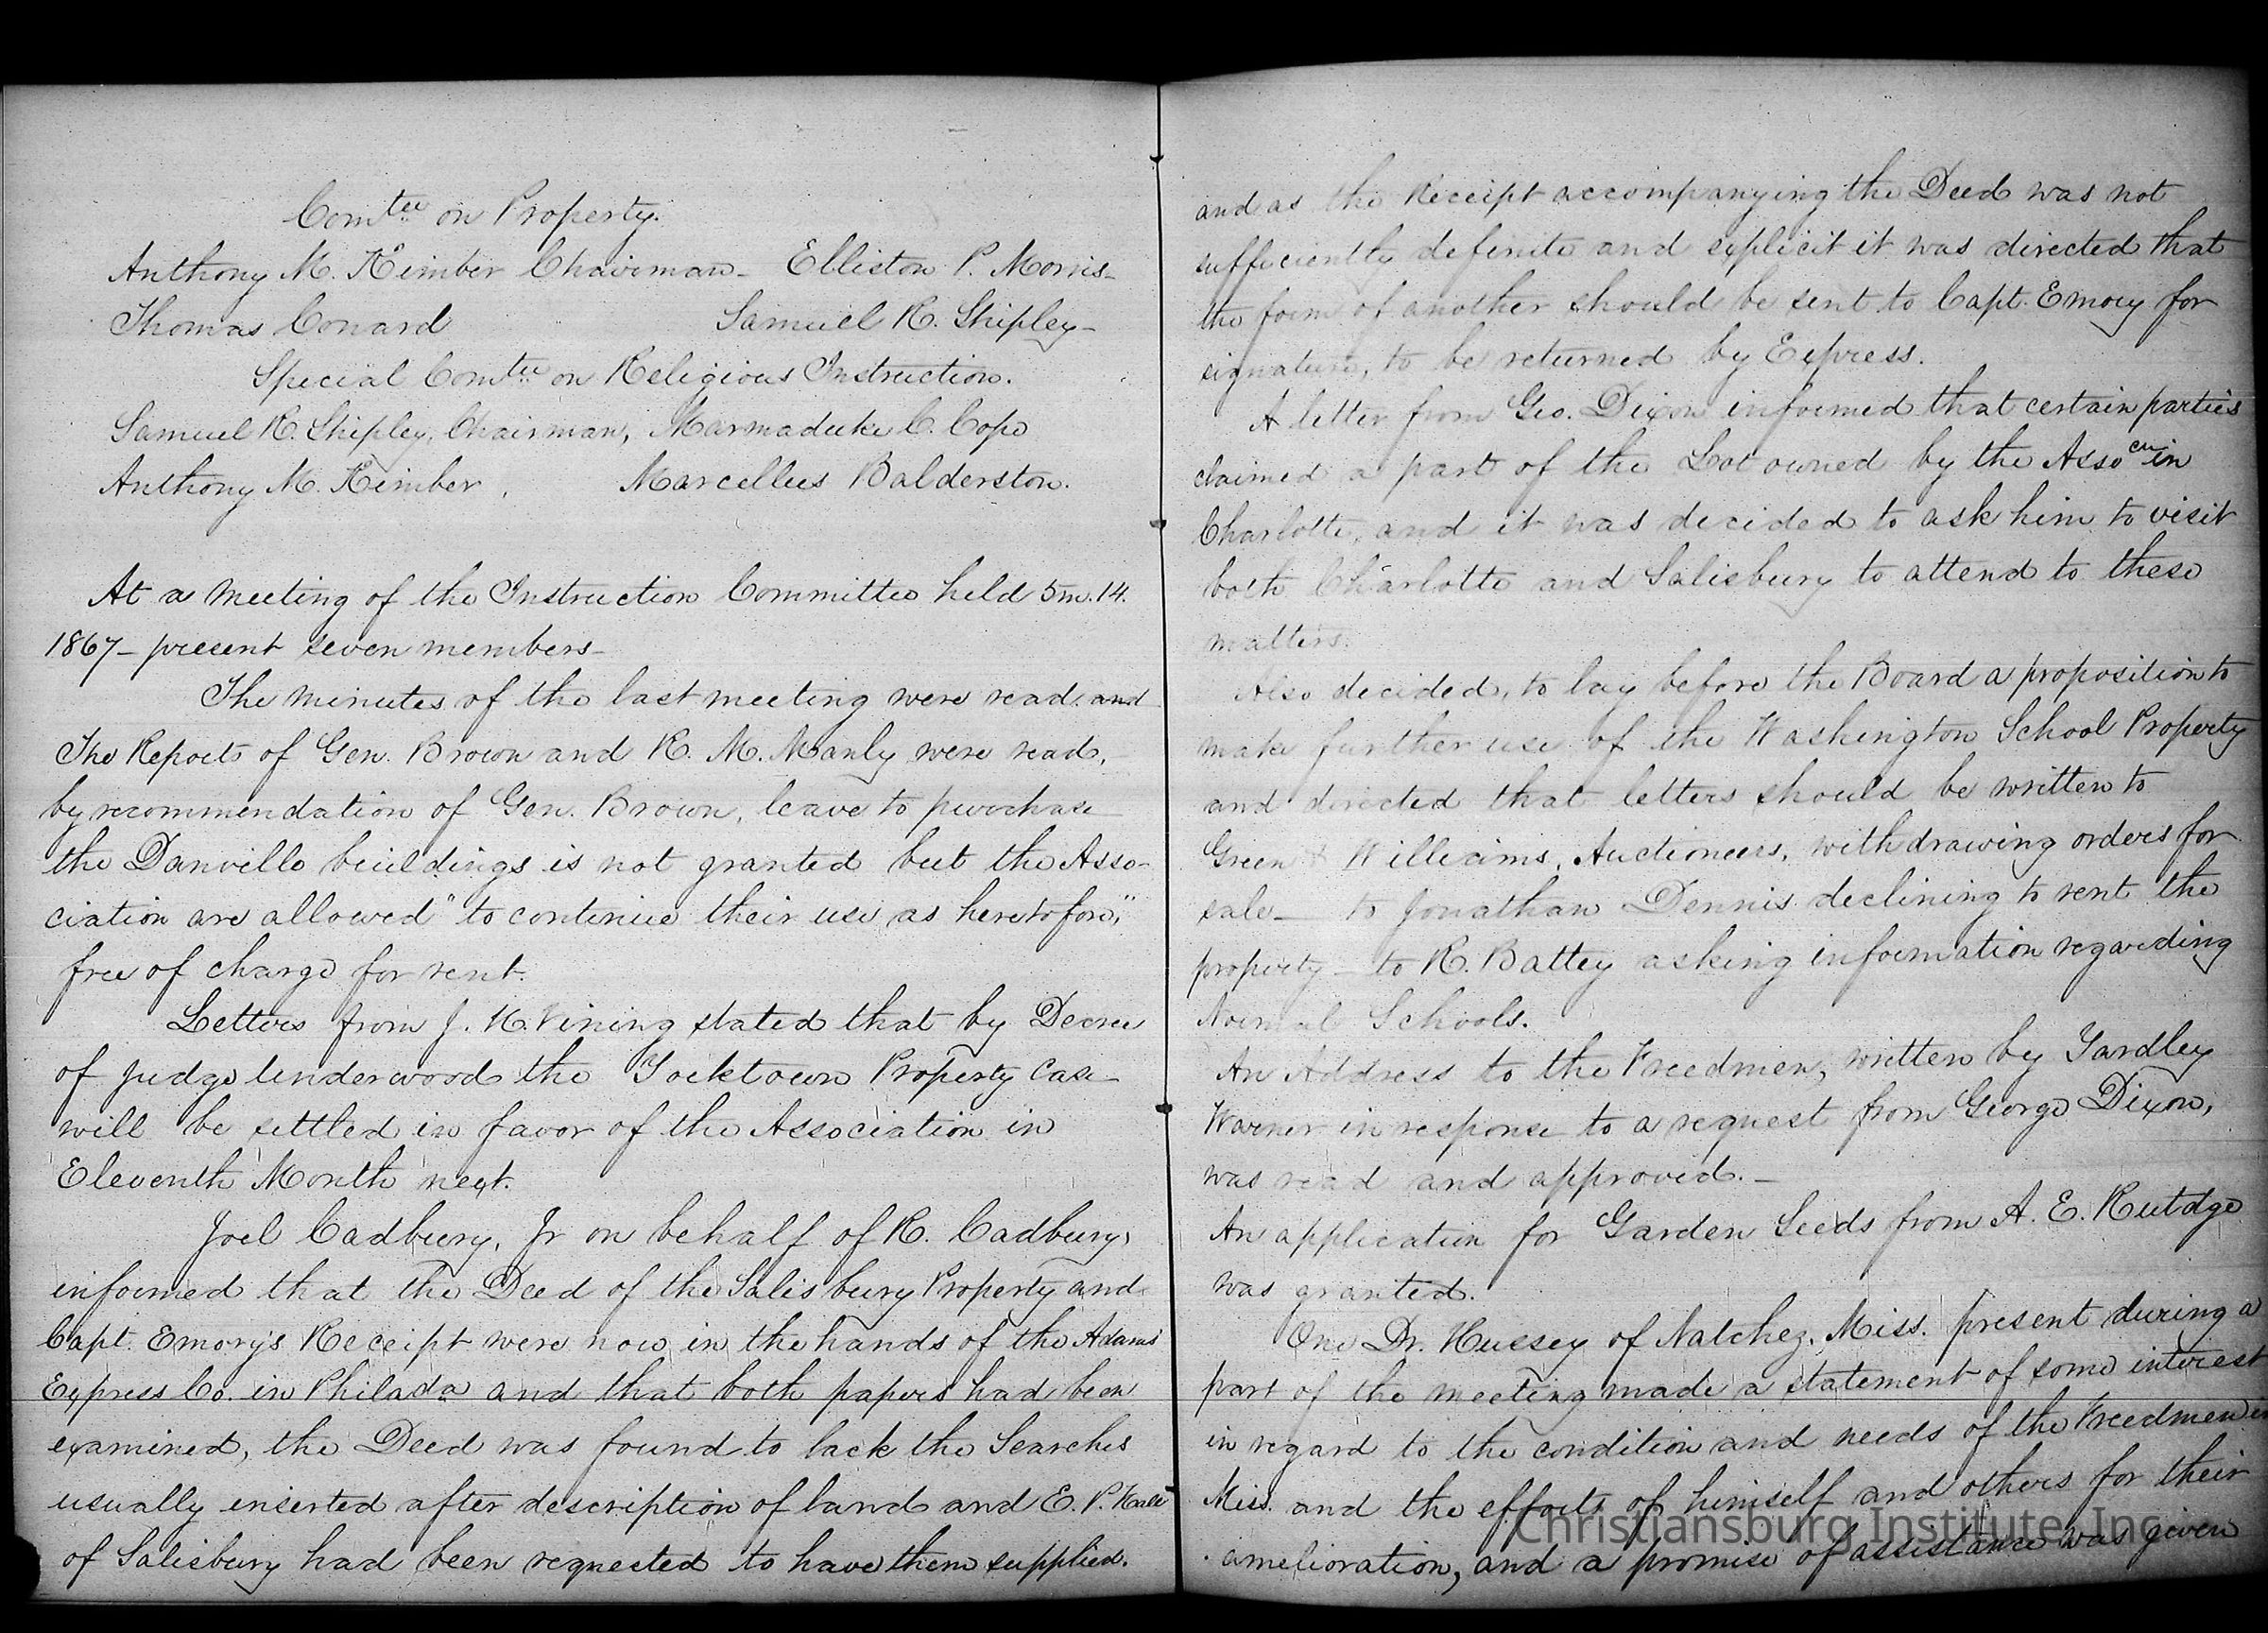 Comtee on Property.
Anthony M. Kimber Chairman - Elliston P. Morris -
Thomas Conard Samuel R. Shipley -
Special Comtee on Religious Instruction.
Samuel R. Shipley, Chairman, Marmaduke C. Cope
Anthony M. Kimber, Marcellus Balderston.
At a Meeting of the Instruction Committee held 5m. 14.
1867 - present seven members -
The Minutes of the last meeting were read. and
The Reports of Gen. Brown and R. M. Manly were read, -
by recommendation of Gen. Brown, leave to purchase
the Danville buildings is not granted but the Asso-
ciation are allowed "to continue their use as heretofore,"
free of charge for rent.
Letters from J. H. Vining stated that by Decree
of Judge Underwood the Yorktown Property Case
will be settled in favor of the Association in
Eleventh Month next.
Joel Cadbury, Jr on behalf of R. Cadbury,
informed that the Deed of the Salisbury Property and
Capt. Emory's Receipt were now in the hands of the Adams'
Express Co. in Philada and that both papers had been
examined, the Deed was found to lack the Searches
usually inserted after description of land and E. P. Hall
of Salisbury had been requested to have them supplied.
and as the Receipt accompanying the Deed was not
sufficiently definite and explicit it was directed that
the form of another should be sent to Capt. Emory for
signature, to be returned by Express.
A letter from Geo. Dixon informed that certain parties
claimed a part of the Lot owned by the Assocn in
Charlotte, and it was decided to ask him to visit
both Charlotte and Salisbury to attend to these
matters.
Also decided, to lay before the Board a proposition to
make further use of the Washington School Property
and directed that letters should be written to
Green & Williams, Auctioneers, withdrawing orders for
sale - to Jonathan Dennis declining to rent the
property - to R. Battey asking information regarding
Normal Schools.
An Address to the Freedmen, written by Yardley
Warner in response to a request from George Dixon,
was read and approved. -
An application for Garden Seeds from A. E. Rutdge
was granted.
One Dr. Hussey of Natchez, Miss. present during a
part of the meeting made a statement of some interest
in regard to the condition and needs of the Freedmen in
Miss. and the efforts of himself and others for their
amelioration, and a promise of assistance was given
Christiansburg Institute, Inc.